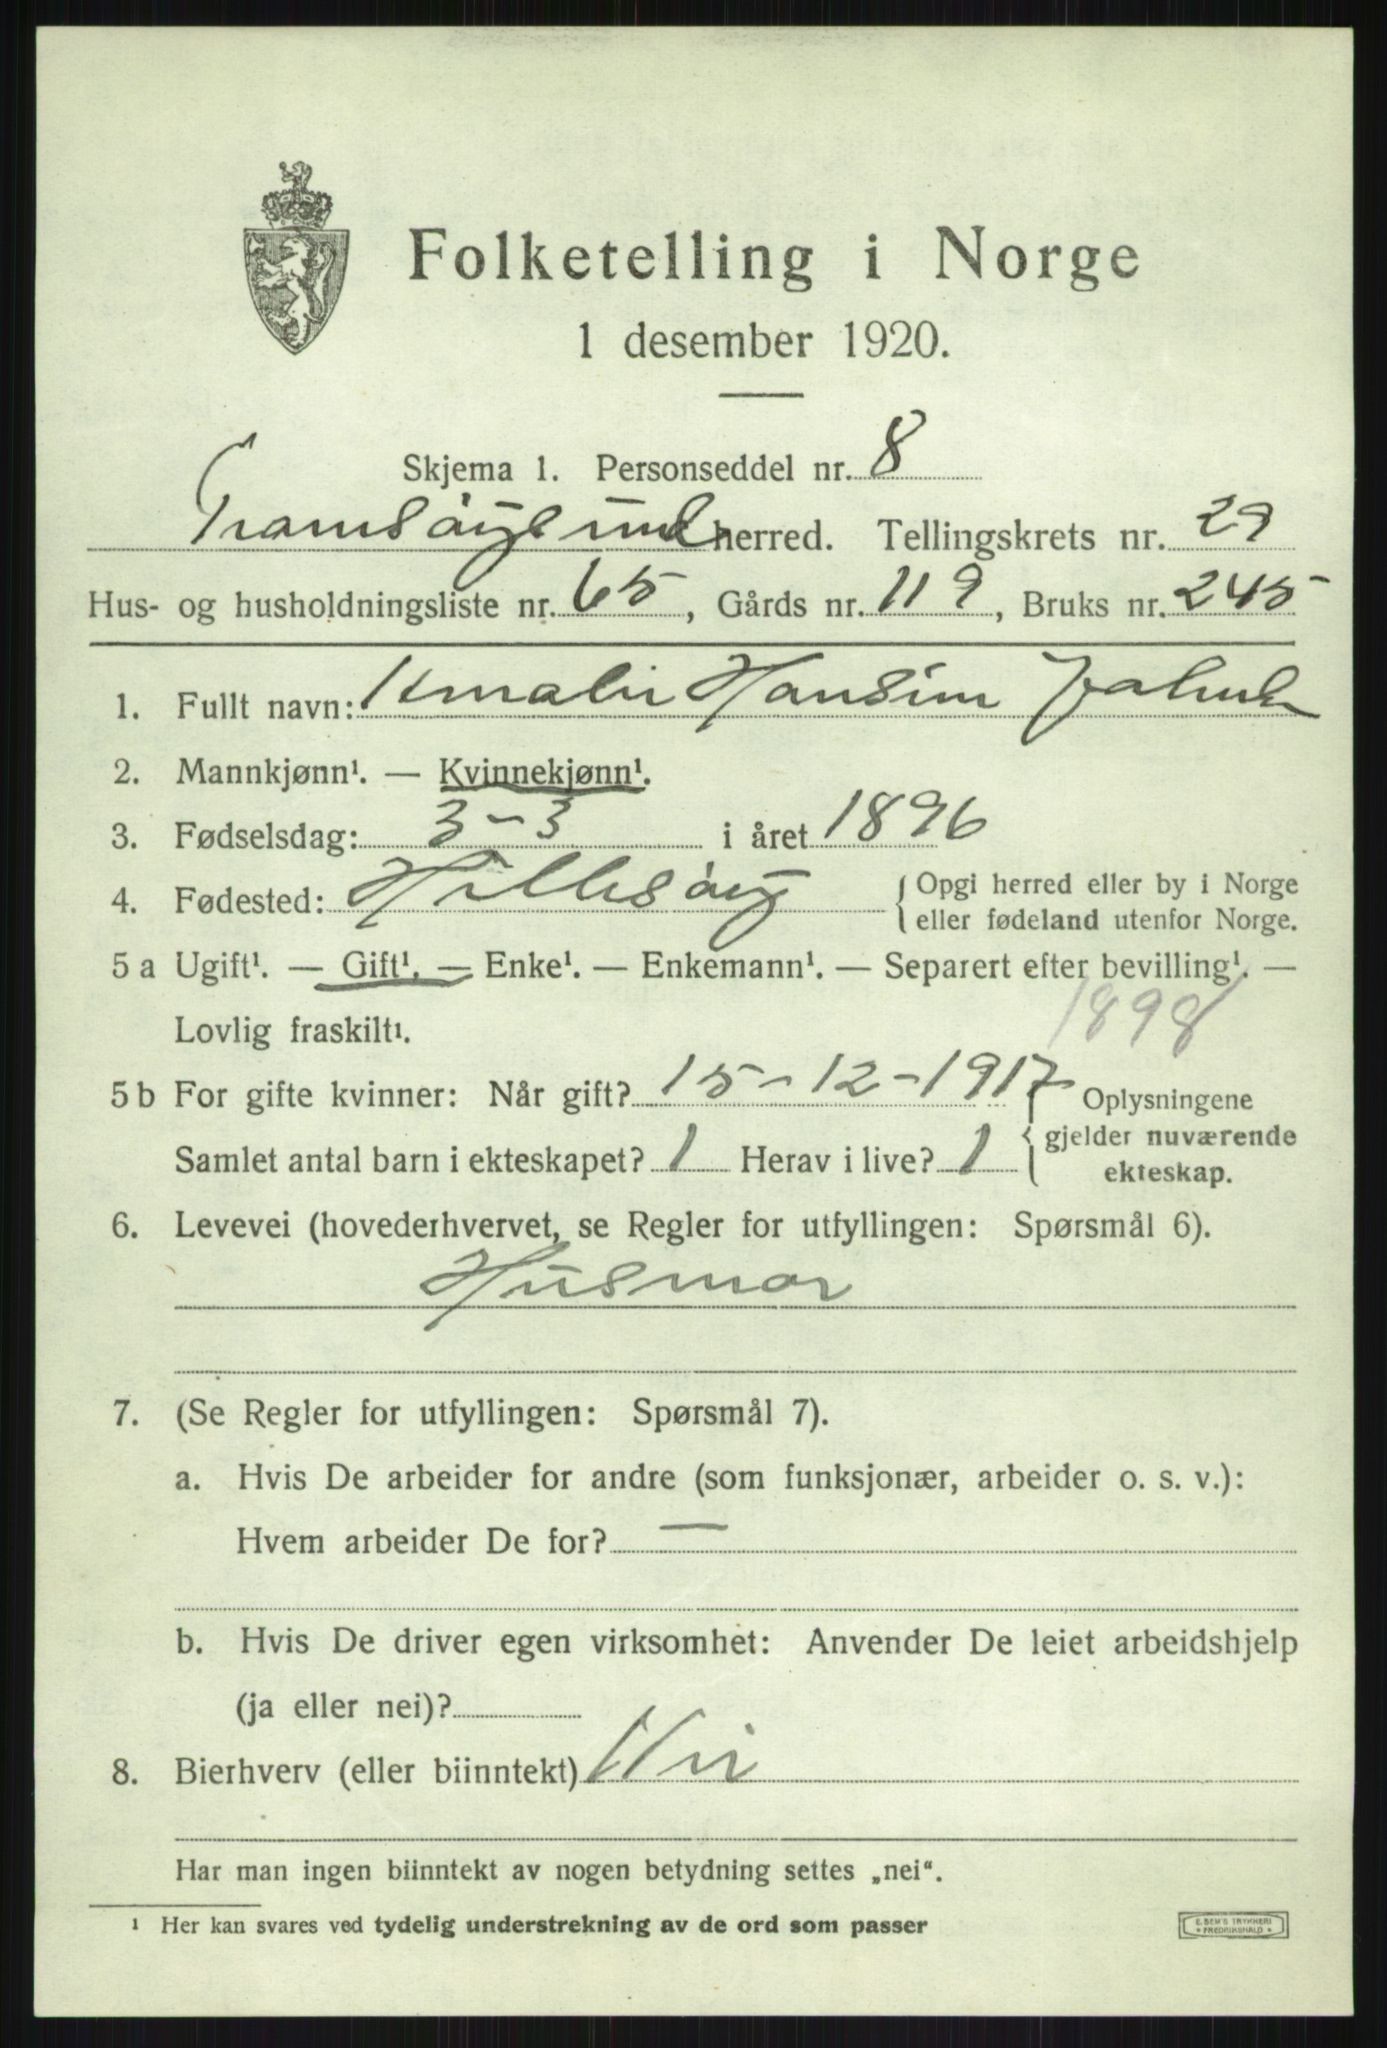 Folketelling i Norge
1 desember 1920.
Skjema 1. Personseddel nr. 8
Tromsøysund herred. Tellingskrets nr. 29
Hus- og husholdningsliste nr. 65, Gårds nr. 119, Bruks nr. 245
1. Fullt navn: Hansine
2. Mannkjønn¹. — Kvinnekjønn¹.
3. Fødselsdag: 3-3 i året 1896
4. Fødested: Hillesøy { Opgi herred eller by i Norge
eller fødeland utenfor Norge.
5 a Ugift¹. — Gift¹. — Enke¹. — Enkemann¹. — Separert efter bevilling¹. —
Lovlig fraskilt¹. 1898
5 b For gifte kvinner: Når gift? 15-12-1917 Oplysningene
gjelder nuværende
Samlet antal barn i ekteskapet? 1 Herav i live? 1 ekteskap.
6. Levevei (hovederhvervet, se Regler for utfyllingen: Spørsmål 6).
Husmor
7. (Se Regler for utfyllingen: Spørsmål 7).
a. Hvis De arbeider for andre (som funksjonær, arbeider o. s. v.):
Hvem arbeider De for? —
b. Hvis De driver egen virksomhet: Anvender De leiet arbeidshjelp
(ja eller nei)?
8. Bierhverv (eller biinntekt) Nei
Har man ingen biinntekt av nogen betydning settes „nei“.
¹ Her kan svares ved tydelig understrekning av de ord som passer
E. SEM'S TRYKKERI
* FREDRIKSHALD *